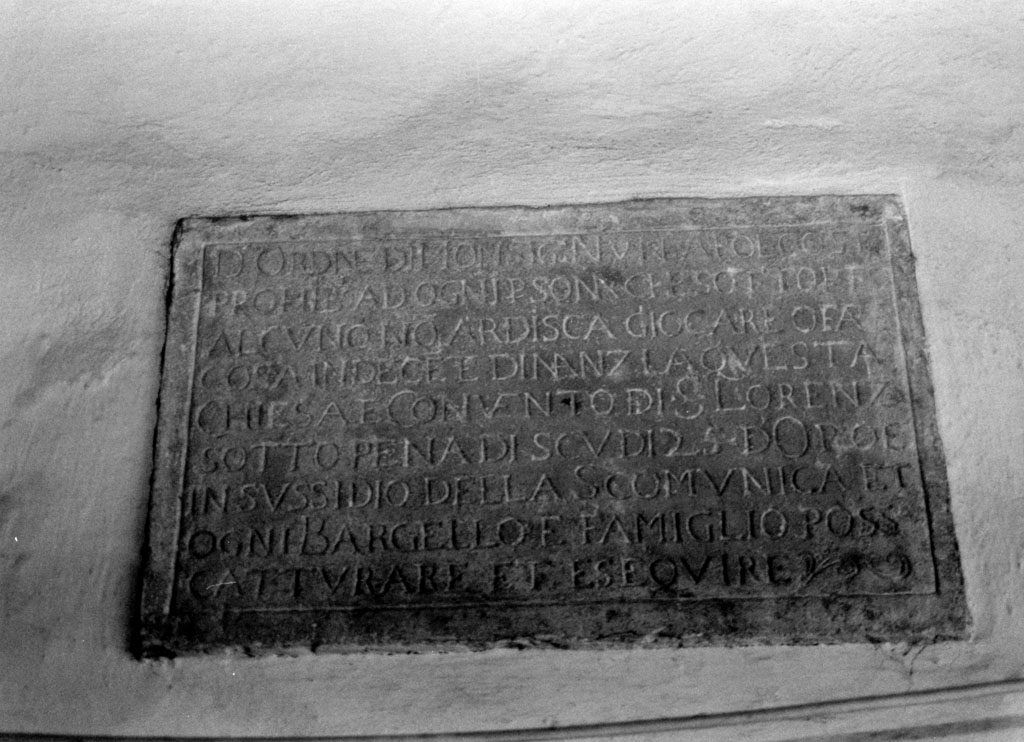 D'ORDNE DI MONSIG N V
PROHIB AD OGNI PSONA CHE SOTTO
ALCVNO NO ARDISCA GIOCARE O FA
COSA INDECETE DINANZ LA QVESTA
CHIESA E CONVENTO DI S LORENZ
SOTTO PENA DI SCVDI 25 D'ORO E
IN SVSSIDIO DELLA SCOMVNIICA ET
OGNI BARGELLO E FAMIGLIO POSS
CATTVRARE ET ESEQVIRE